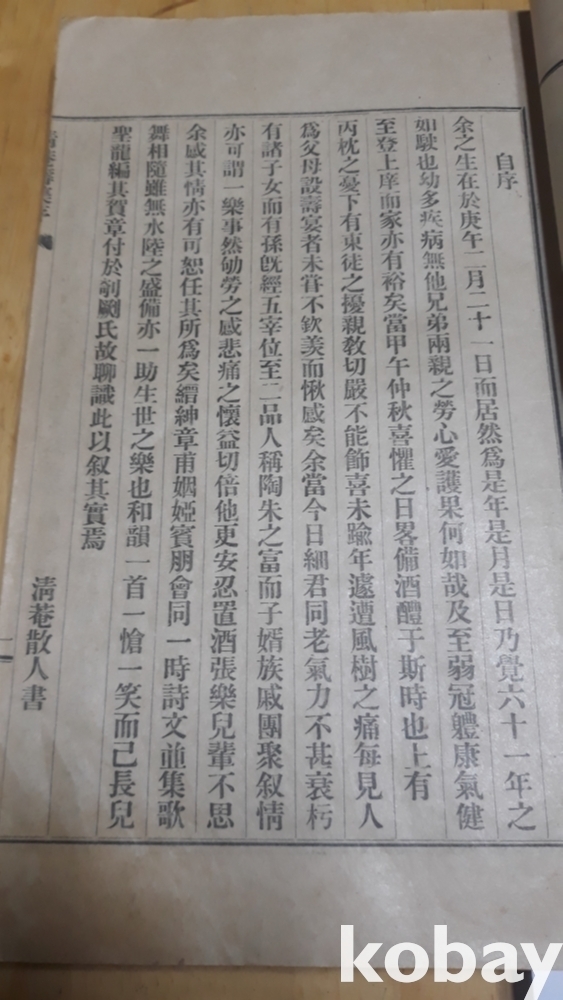 自序
余之生在於庚午二月二十一日而居然爲是年是月是日乃覺六十一年之
如駛也幼多疾病無他兄弟兩親之勞心愛護果何如哉及至弱冠軆康氣健
至登上庠而家亦有裕矣當甲午仲秋喜懼之日畧備酒醴于斯時也上有
丙枕之憂下有東徒之擾親敎切嚴不能飾喜未踰年遽遭風樹之痛每見人
爲父母設壽宴者未甞不欽羨而愀感矣余當今日細君同老氣力不甚衰朽
有諸子女而有孫旣經五宰位至二品人稱陶朱之富而子婿族戚團聚叙情
亦可謂一樂事然劬勞之感悲痛之懷益切倍他更安忍置酒張樂兒輩不思
余感其情亦有可恕任其所爲矣縉紳章甫姻婭賓朋會同一時詩文並集歌
舞相隨雖無水陸之盛備亦一助生世之樂也和韻一首一愴一笑而已長兒
聖龍編其賀章付於剞劂氏故聊識此以叙其實焉
淸菴散人書
kobay